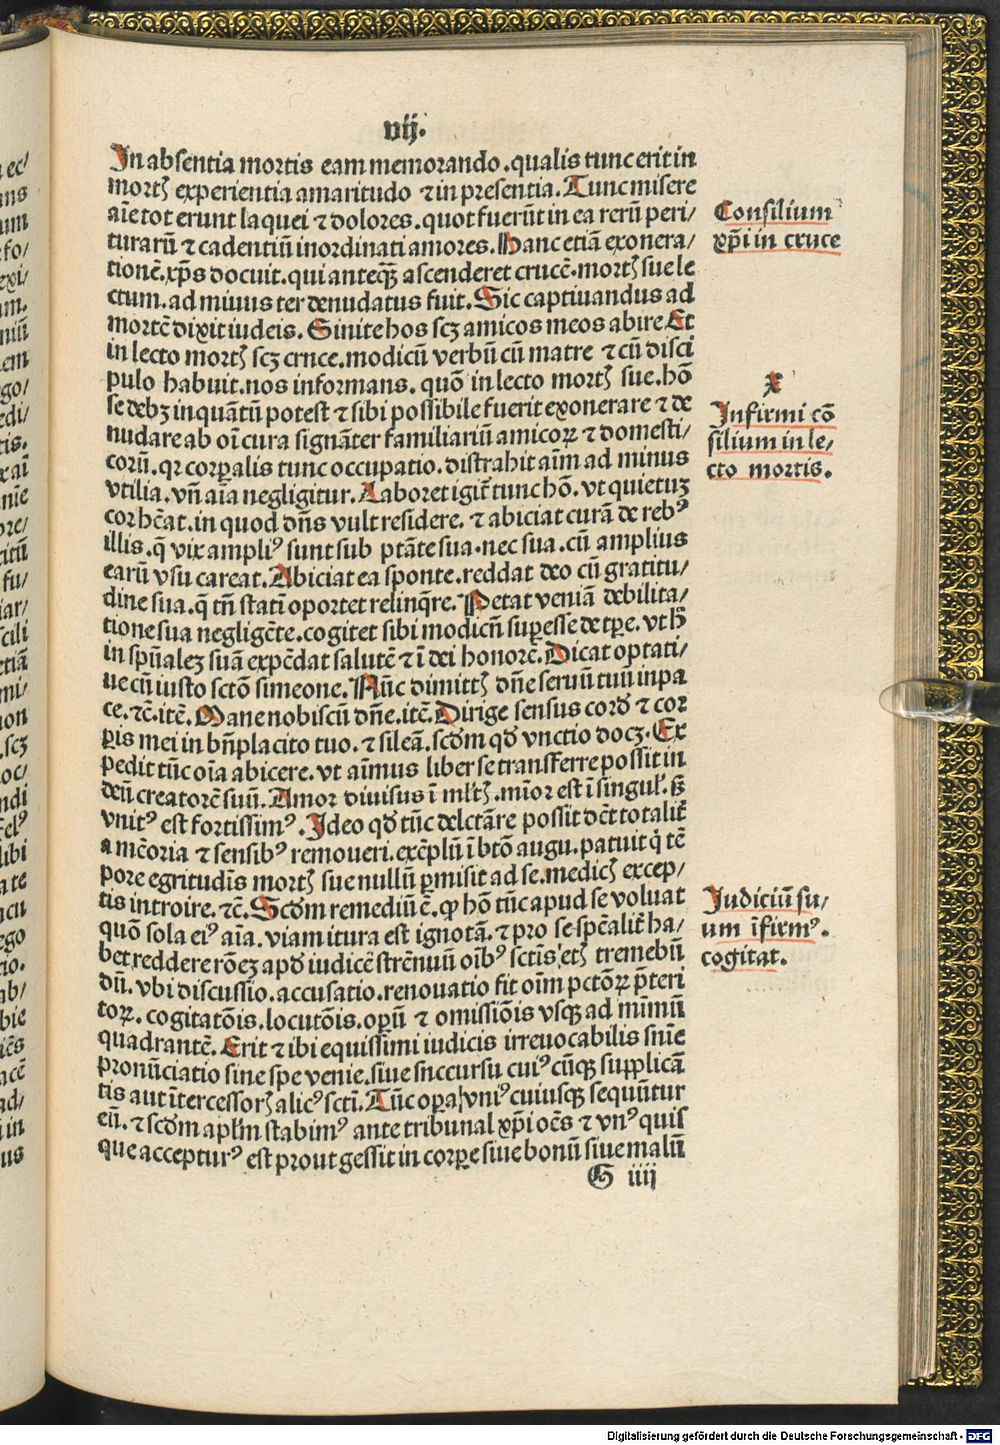 vij.
In absentia mortis eam memorando .qualis tunc erit in
mortꝭ experientia amaritudo ⁊ in presentia. Tunc misere
aīe tot erunt laquei ⁊ dolores. quot fuerūt in ea rerū peri/
turarū ⁊ cadentiū inordinati amores. Hanc etiā exonera/
tionē.xp̄s docuit. qui anteqꝫ̄ ascenderet crucē. mortꝭ sue le
ctum. ad minus ter denudatus fuit. Sic captiuandus ad
mortē dixit iudeis. Sinite hos scꝫ amicos meos abire Et
in lecto mortꝭ scꝫ crnce. modicū verbū cū matre ⁊ cū disci
pulo habuit. nos informans. quō in lecto mortꝭ sue. hō
se debꝫ inquātū potest ⁊ sibi possibile fuerit exonerare ⁊ de
nudare ab oī cura signāter familiariū amicoꝝ ⁊ domesti/
corū. qꝛ corꝑalis tunc occupatio. distrahit aīm ad minus
vtilia. vñ aīa negligitur. Laboret igit᷑ tunc hō. vt quietuꝫ
cor hēat. in quod dñs vult residere. ⁊ abiciat curā de rebꝰ
illis. q̄ vix ampliꝰ sunt sub ptāte sua. nec sua. cū amplius
earū vsu careat. Abiciat ea sponte. reddat deo cū gratitu/
dine sua. q̄ tñ statī oportet relinq̄re. Petat veniā debilita/
tione sua negligēte. cogitet sibi modicū suꝑesse de tꝑe. vt hꝰ
in spūalez suā expēdat salutē ⁊ ī dei honorē. Dicat optati/
ue cū iusto scto simeone. Nūc dimittꝭ dñe seruū tuū in pa
ce. ⁊c̄. itē. Mane nobiscū dñe. itē. Dirige sensus cordꝭ ⁊ cor
ꝑis mei in bn̄placito tuo. ⁊ sileā. scd̄m qd̄ vnctio docꝫ. Ex
pedit tūc oīa abicere. vt aīmus liber se transferre possit in
deū creatorē suū. Amor diuisus ī ml̄tꝭ. mīor est ī singul'. sꝫ
vnitꝰ est fortissimꝰ. Ideo qd̄ tūc delctāre possit dēt totalit᷑
a mēoria ⁊ sensibꝰ remoueri. exēplū ī btō augu. patuit q̇ tē
pore egritudīs mortꝭ sue nullū ꝑmisit ad se. medicꝭ excep/
tis introire. ⁊c̄. Scd̄m remediū ē. ꝙ hō tūc apud se voluat
quō sola eiꝰ aīa. viam itura est ignotā. ⁊ pro se spēalit᷑ ha/
bet reddere rōeꝫ apd̄ iudicē strēnuū oībꝰ sctīs etꝭ tremebū
dū. vbi discussio. accusatio. renouatio fit oīm pctōꝝ p̄teri
toꝝ. cogitatōis. locutōis. oꝑū ⁊ omissiōis vsqꝫ ad mīmū
quadrantē. Erit ⁊ ibi equissimi iudicis irreuocabilis snīe
pronūciatio sine spe venie. siue snccursu cuiꝰcūqꝫ supplicā
tis aut ītercessorꝭ alicꝰ sctī. Tūc oꝑa vniꝰcuiusqꝫ sequūtur
eū. ⁊ scd̄m apl̄m stabimꝰ ante tribunal xp̄i oēs ⁊ vnꝰquis
que accepturꝰ est prout gessit in corꝑe siue bonū siue malū
G iiij
Consilium
xp̄i in cruce
x
Infirmi cō
silium in le/
cto mortis.
Iudiciū su/
um īfirmꝰ.
cogitat.
Digitalisierung gefördert durch die Deutsche Forschungsgemeinschaft - DFG